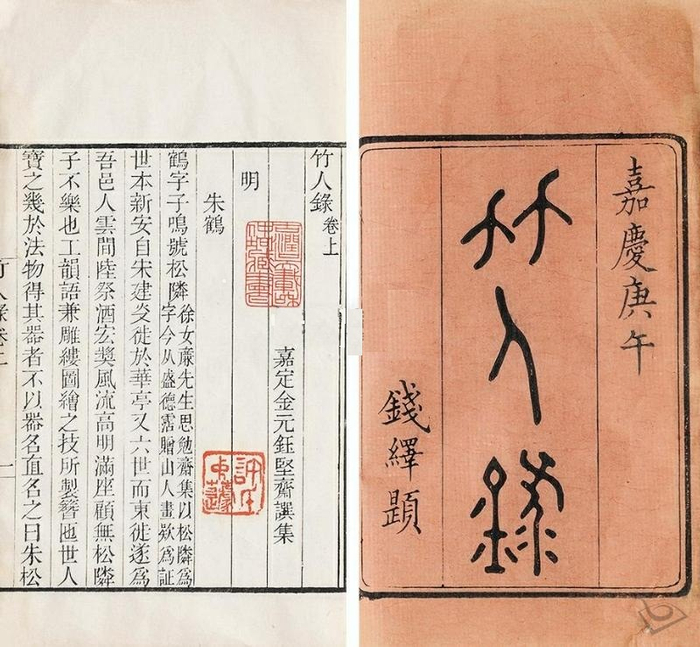 嘉慶庚午
竹人錄
錢繹題
竹人錄 卷上
嘉定金元鈺堅齋譔集
明
朱鶴
鶴字子鳴號松隣
徐女廉先生思勉齋集以松隣爲
字今从盛德需贈山人畫欵爲証
世本新安自宋建炎徙於華亭又六世而東徙遂爲
吾邑人雲間陸祭酒宏獎風流高明滿座顧無松隣
子不樂也工韻語兼雕鏤圖繪之技所製簪匜世人
寶之幾於法物得其器者不以器名直名之曰朱松